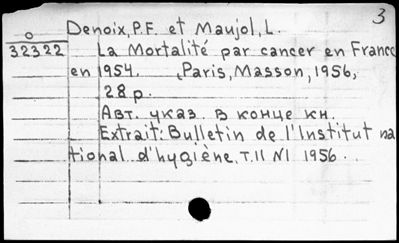 3
Denoix, P.F. et Maujol, L.
O
32322
La Mortalité par cancer en France
en 1954. Paris, Masson, 1956,
28 p.
Авт. указ. в конце кн.
Extrait: Bulletin de l'Institut na
tional d'hygiène, T.11 N1 1956.